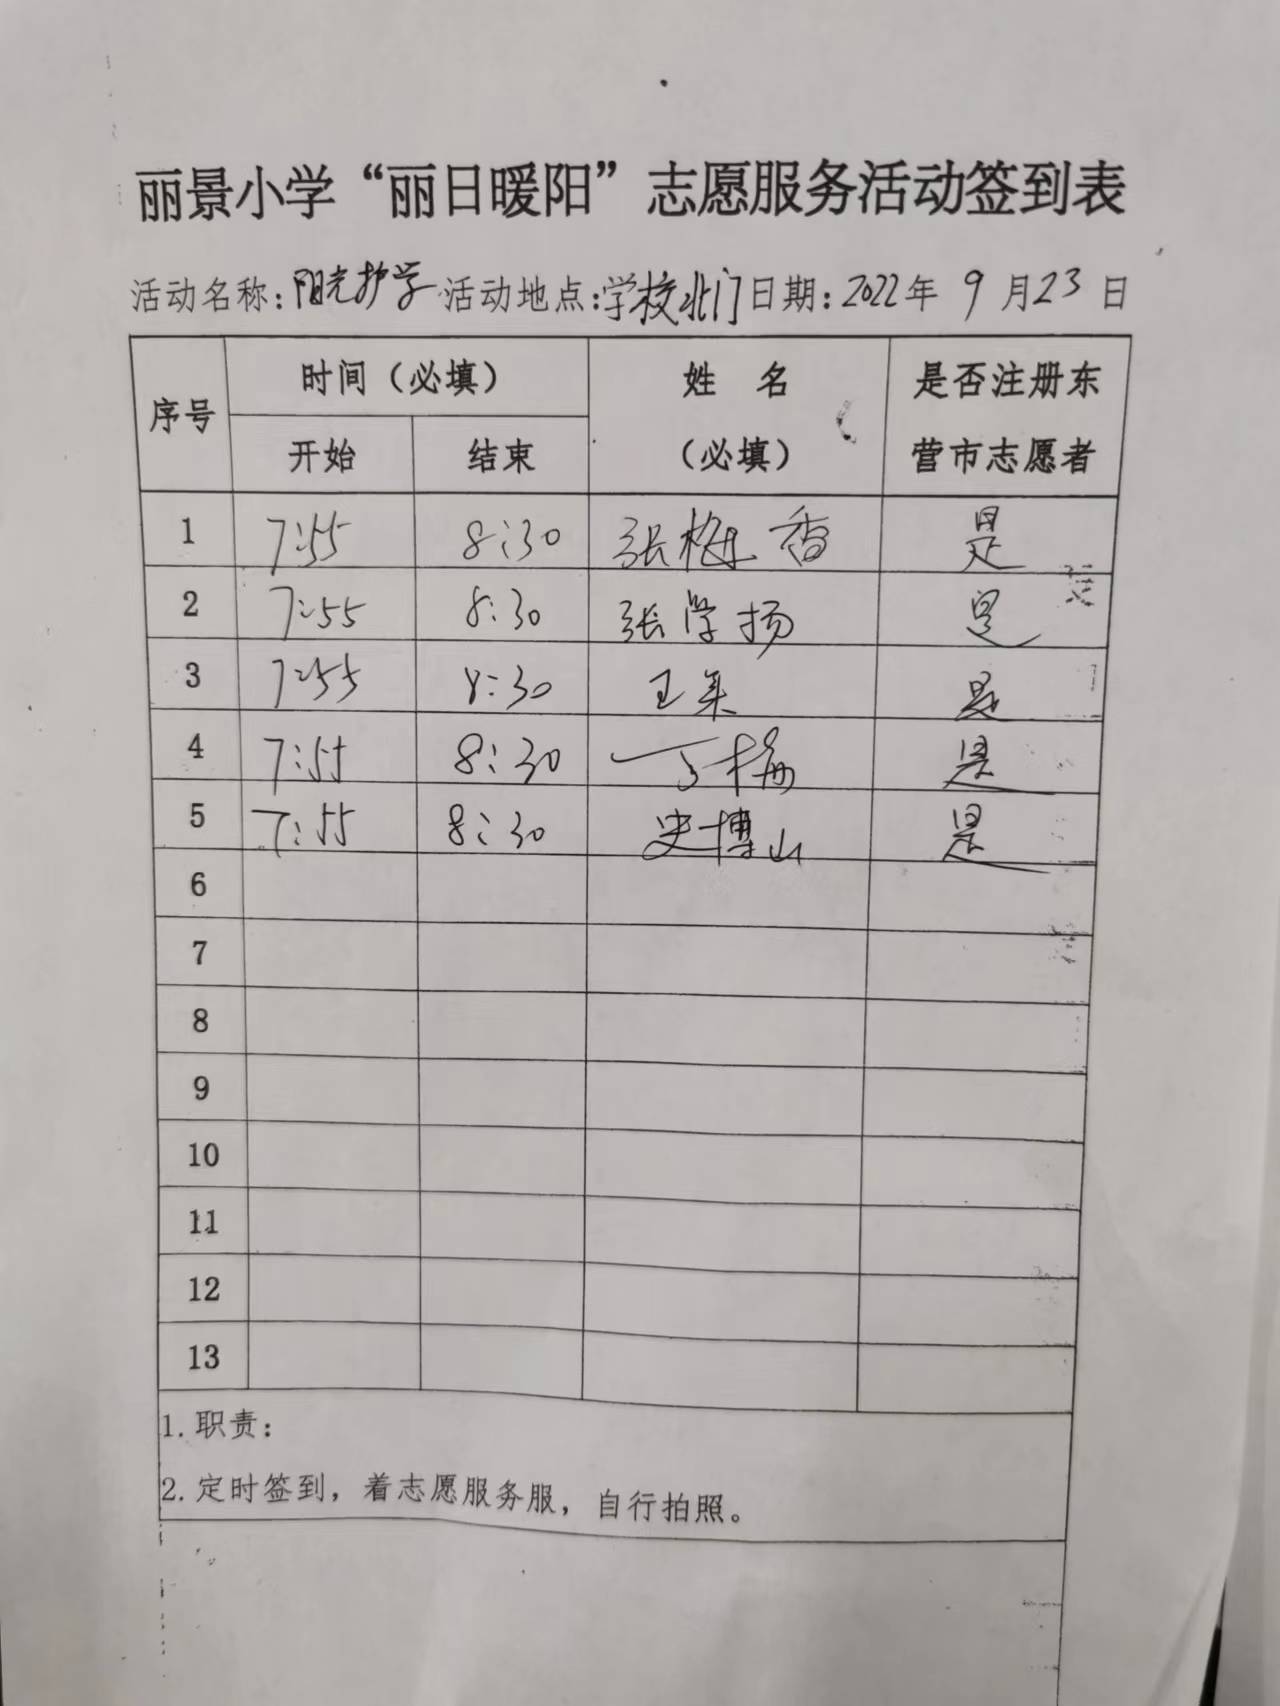 丽景小学“丽日暖阳”志愿服务活动签到表
活动名称：阳光护学 活动地点：学校北门 日期：2022年 9 月 23 日
序号 时间（必填） 姓 名（必填） 是否注册东营市志愿者
开始 结束
1 7:55 8:30 张梅香 是
2 7:55 8:30 张学扬 是
3 7:55 8:30 王 是
4 7:55 8:30 丁梅 是
5 7:55 8:30 史博山 是
6
7
8
9
10
11
12
13
1.职责：
2.定时签到，着志愿服务服，自行拍照。